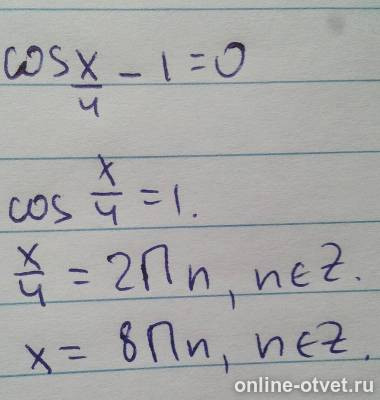 cos x/4 - 1 = 0
cos x/4 = 1.
x/4 = 2Πn, n∈Z.
x = 8Πn, n∈Z.
online-otvet.ru